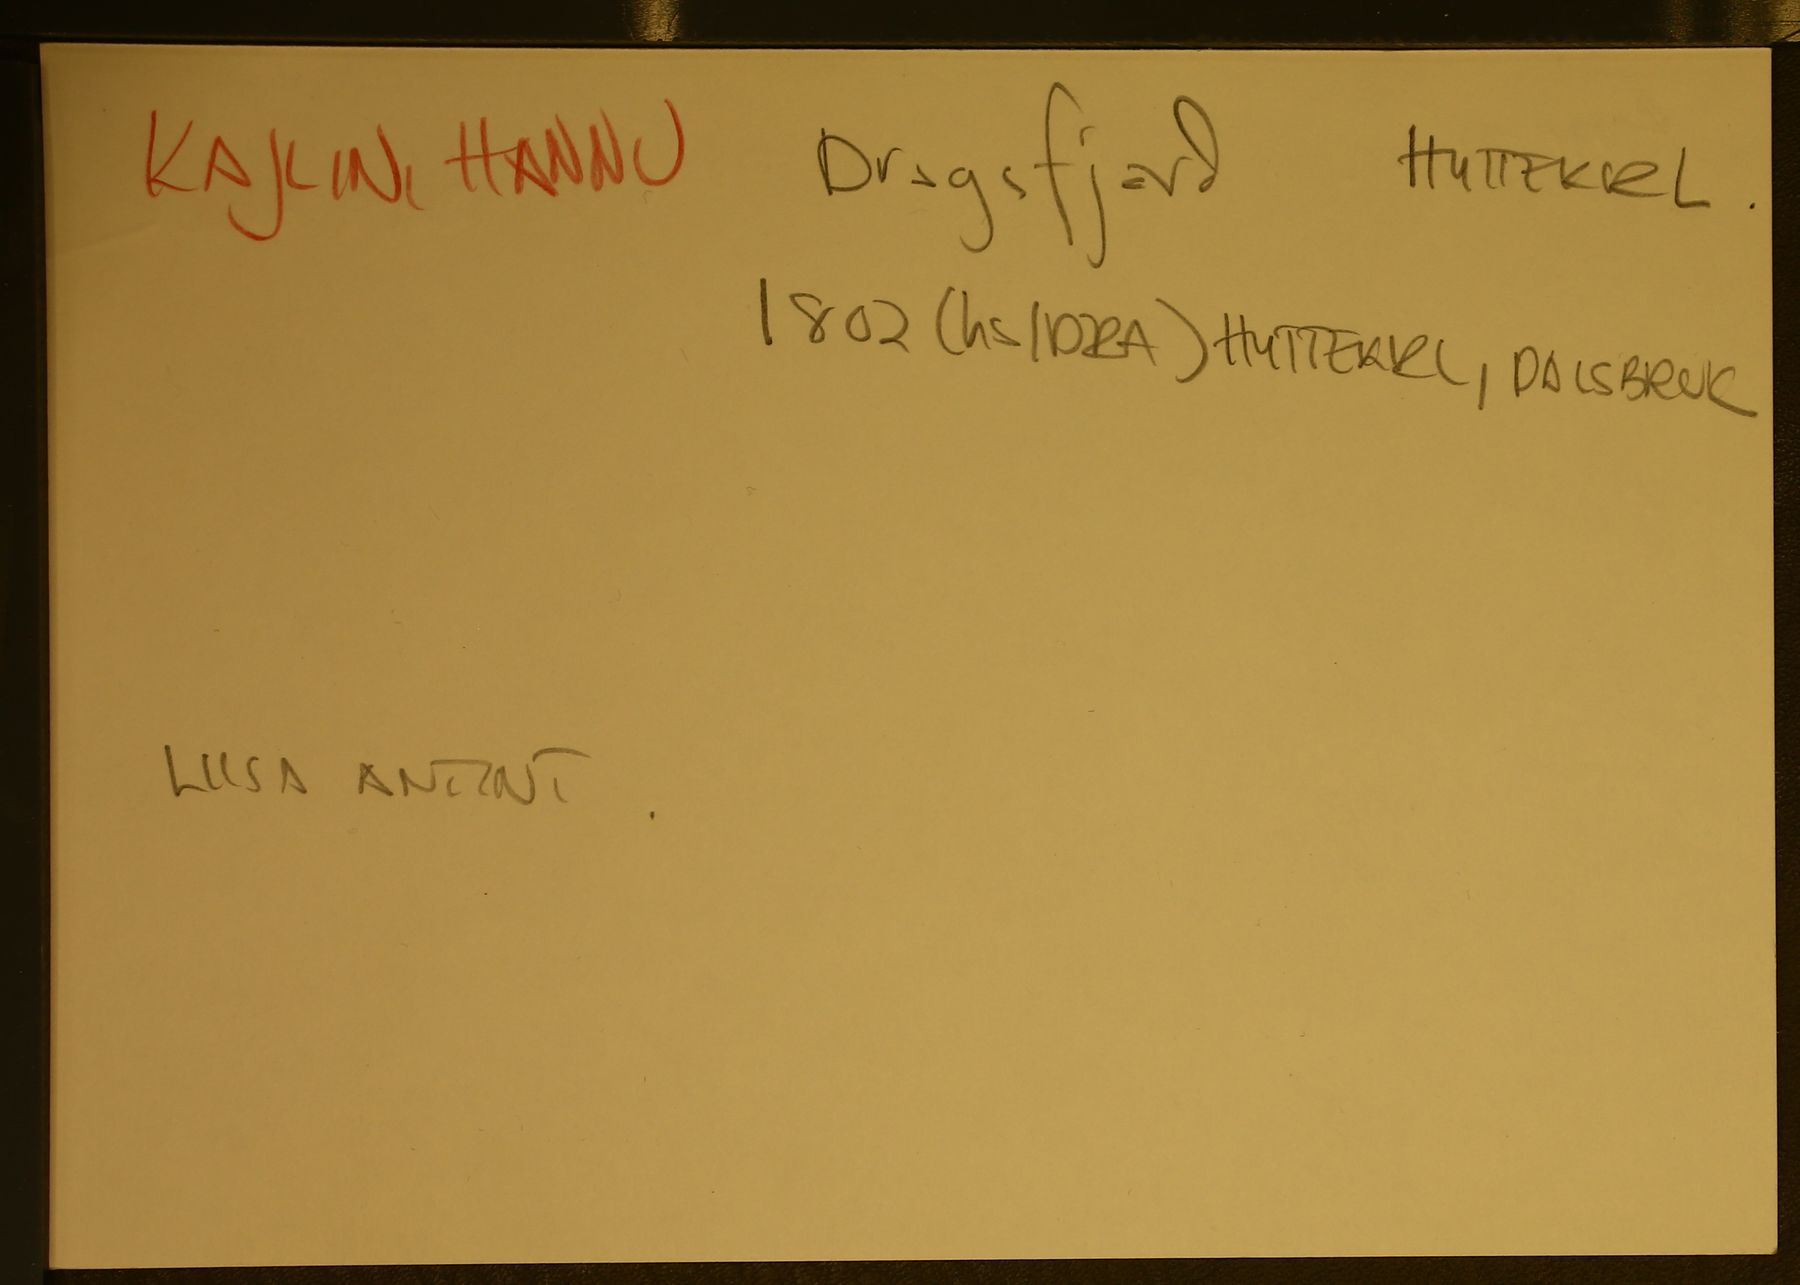 KAJLIN, HANNU Dragsfjard HYTTEKRL.
1802 (hs/DRA) HYTTEKRL, DALSBRUK
LIISA ANTINT.